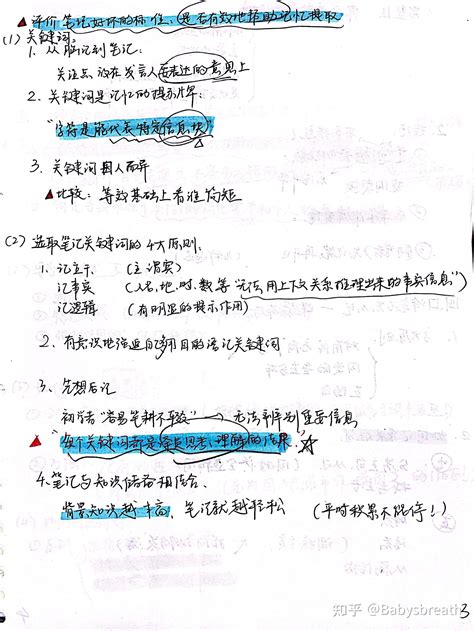 ▲评价笔记好坏的标准,是否有效地帮助记忆提取
(1) 关键词:
1. 从脑记到笔记:
关注点放在发言人要表达的意思上
2. 关键词是记忆的提示牌:
"字符是能代表特定信息块"
3. 关键词因人而异
▲比较:等效基础上看谁简短
(2) 选取笔记关键词的4大原则:
1. 记主干 (主谓宾)
记事实 (人名、地、时、数等"无法用上下文关系推理出来的事实信息")
记逻辑 (有明显的提示作用)
2. 有意识地强迫自己用目的语记关键词
3. 先想后记
初学者"容易笔耕不辍" 无法辨别重要信息
▲ "每个关键词都是要点思考、理解的结果.☆
4. 笔记与知识储备相结合.
背景知识越丰富、笔记就越轻松 (平时积累不能停!)
知乎 @Babysbreath
3